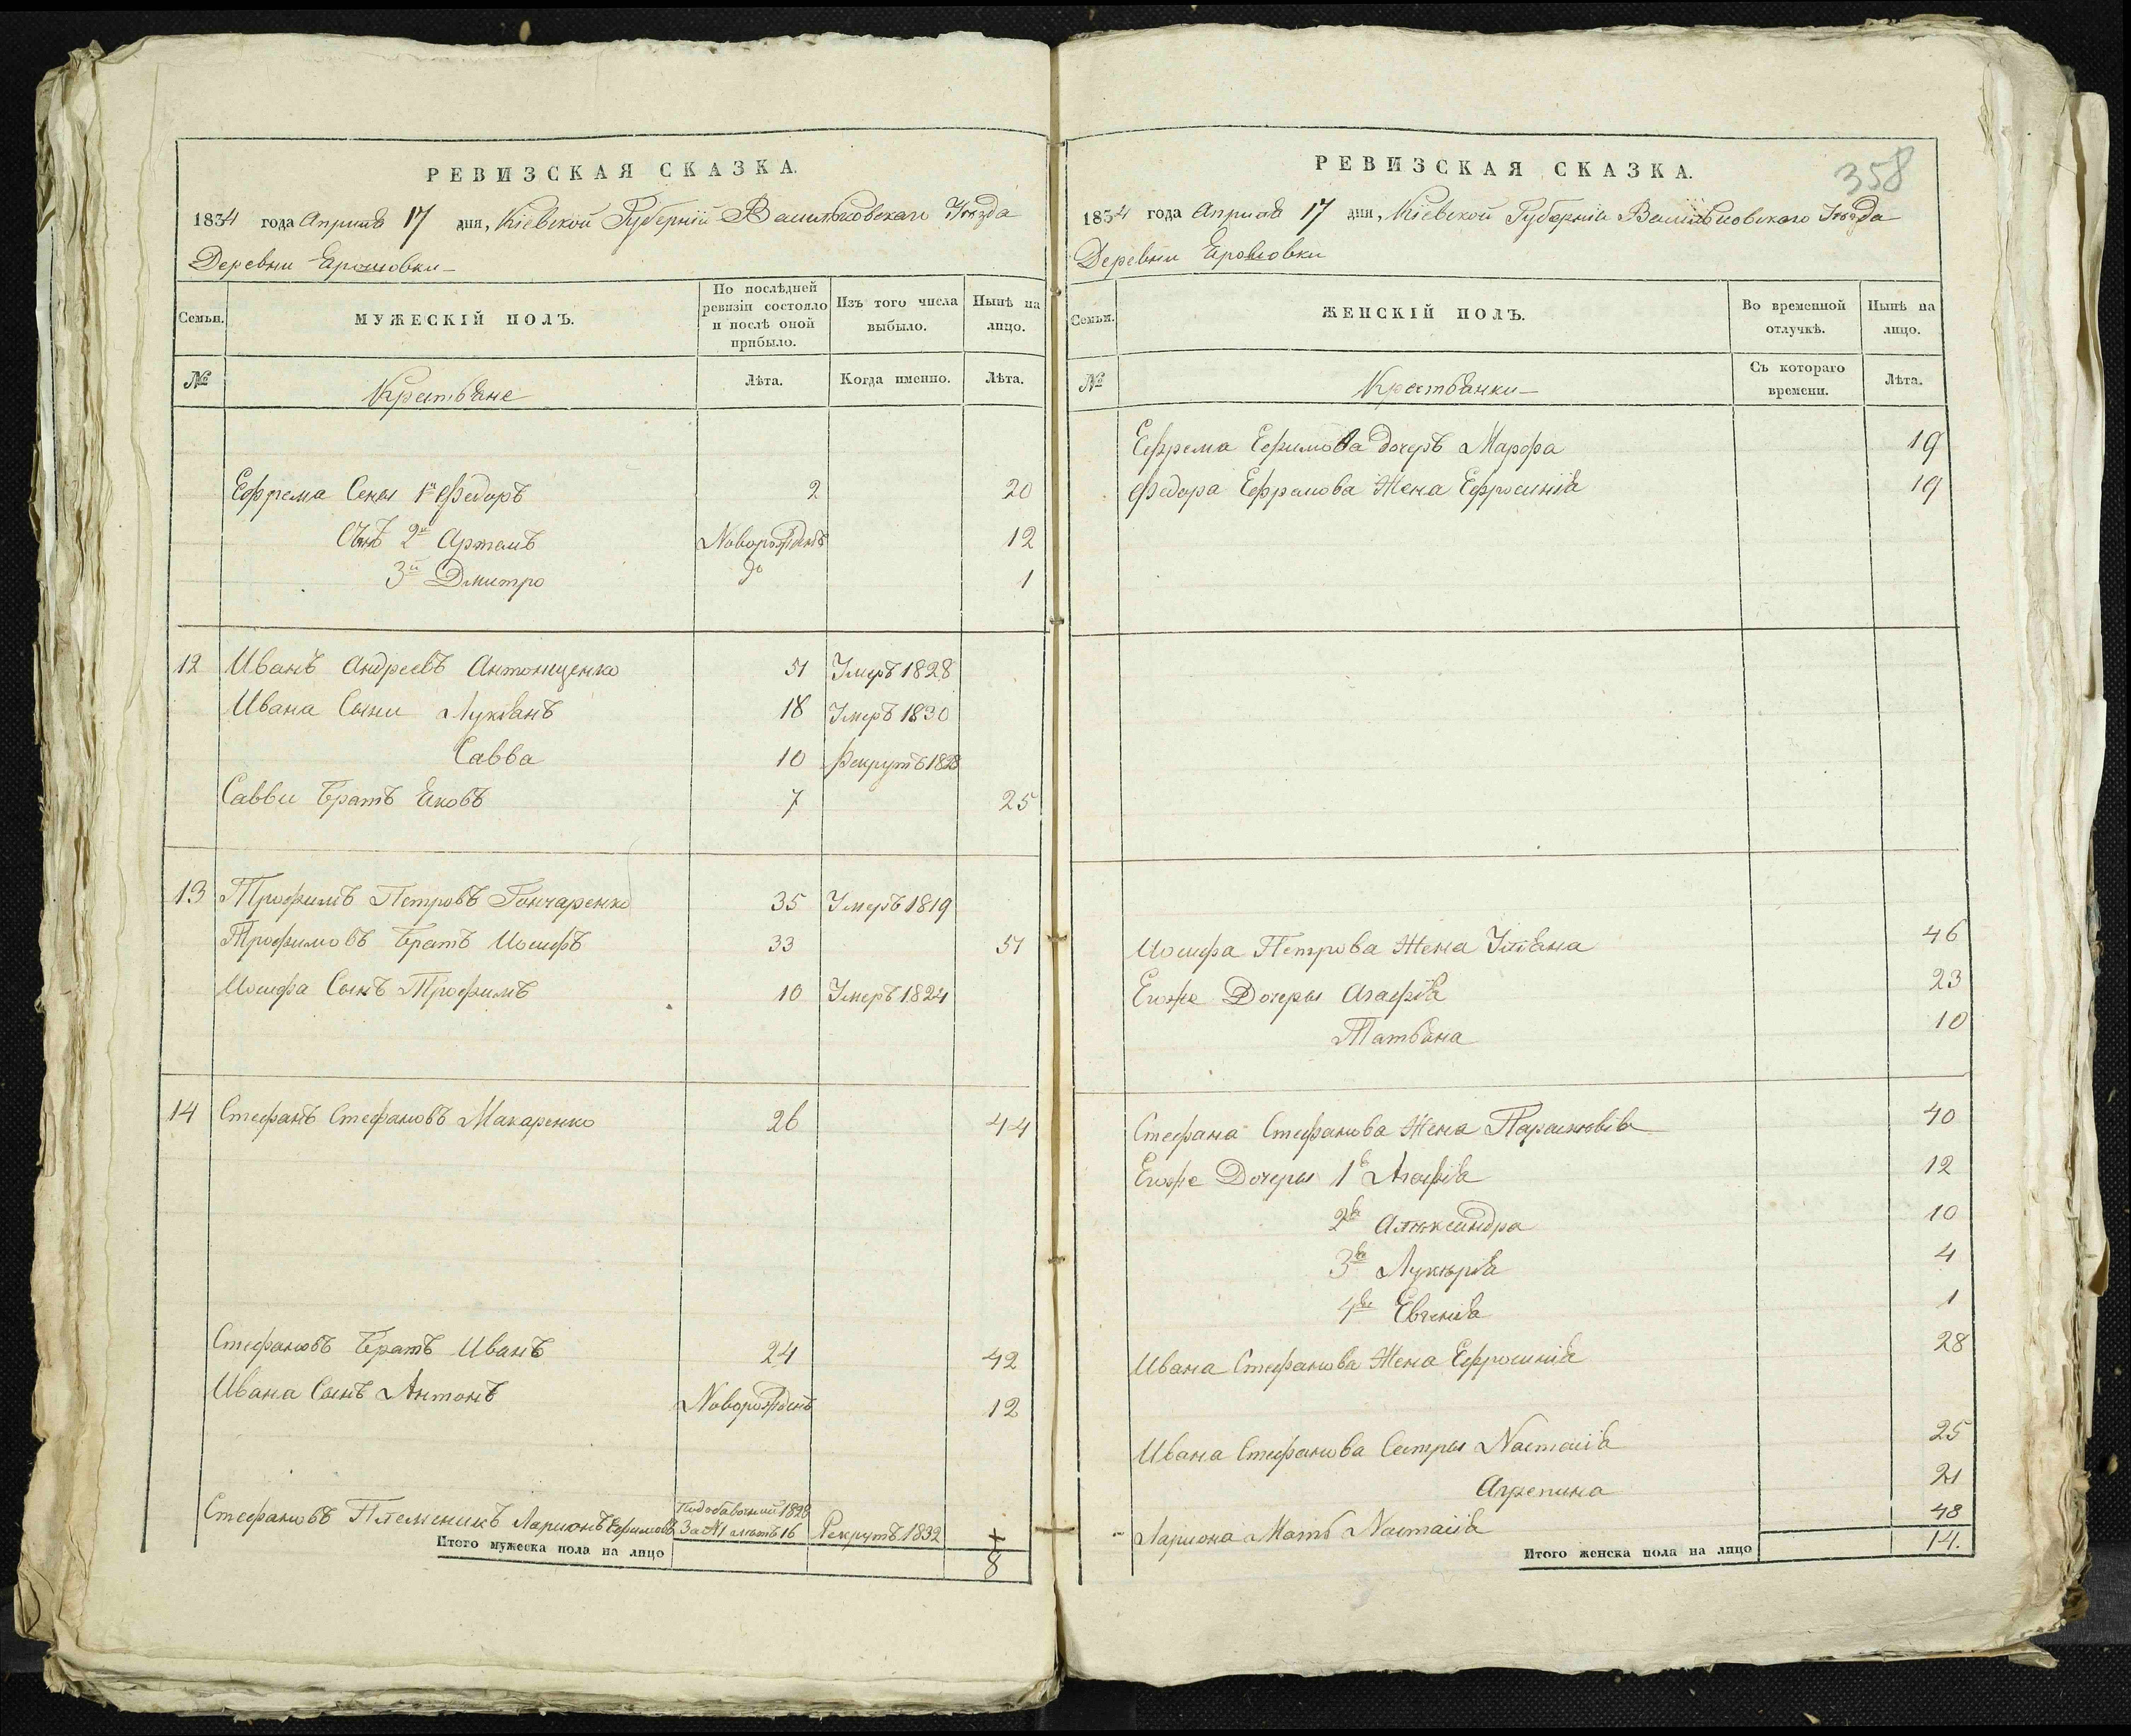 РЕВИЗСКАЯ СКАЗКА.
1834 года Апреля 17 дня, Кіевской Губерніи Васильковскаго Уѣзда
Деревни Ерошовки
Семьи.
МУЖЕСКІЙ ПОЛЪ.
По послѣдней ревизіи состояло и послѣ оной прибыло.
Изъ того числа выбыло.
Нынѣ на лицо.
№
Крестьяне
Лѣта.
Когда именно.
Лѣта.
Ефрема Сены 1й Федоръ 2 20
Сынъ 2й Артемъ Новорожденъ 12
3й Дмитро до 1
12 Иванъ Андреевъ Антонищенко 51 Умеръ 1828
Ивана Сыни Лукьянъ 18 Умеръ 1830
Савва 10 Рекрутъ 1828
Савви Братъ Яковъ 7 25
13 Трофимъ Петровъ Гончаренко 35 Умеръ 1819
Трофимовъ Братъ Иосифъ 33 51
Иосифа Сынъ Трофимъ 10 Умеръ 1824
14 Стефанъ Стефановъ Макаренко 26 44
Стефановъ Братъ Иванъ 24 42
Ивана Сынъ Антонъ Новорожденъ 12
Стефановъ Племеникъ Ларионъ Ефимовъ
Подобавочній 1828
За №1 лѣтъ 16 Рекрутъ 1832
Итого мужеска пола на лицо 8
РЕВИЗСКАЯ СКАЗКА.
358
1834 года Апреля 17 дня, Кіевской Губерніи Васильковскаго Уѣзда
Деревни Ерошовки
Семьи.
ЖЕНСКІЙ ПОЛЪ.
Во временной отлучкѣ.
Нынѣ на лицо.
№
Крестьянки
Съ котораго времени.
Лѣта.
Ефрема Ефимова дочеръ Марфа 19
Федора Ефремова Жена Ефросинія 19
Иосифа Петрова Жена Уліяна 46
Егоже Дочеры Агафія 23
Татьяна 10
Стефана Стефанова Жена Парасковія 40
Егоже Дочеры 1я Агафія 12
2я Александра 10
3я Лукѣрія 4
4я Евгенія 1
Ивана Стефанова Жена Ефросинія 28
Ивана Стефанова Сестры Настасія 25
Агрепина 21
Лариона Мать Настасія 48
Итого женска пола на лицо 14.